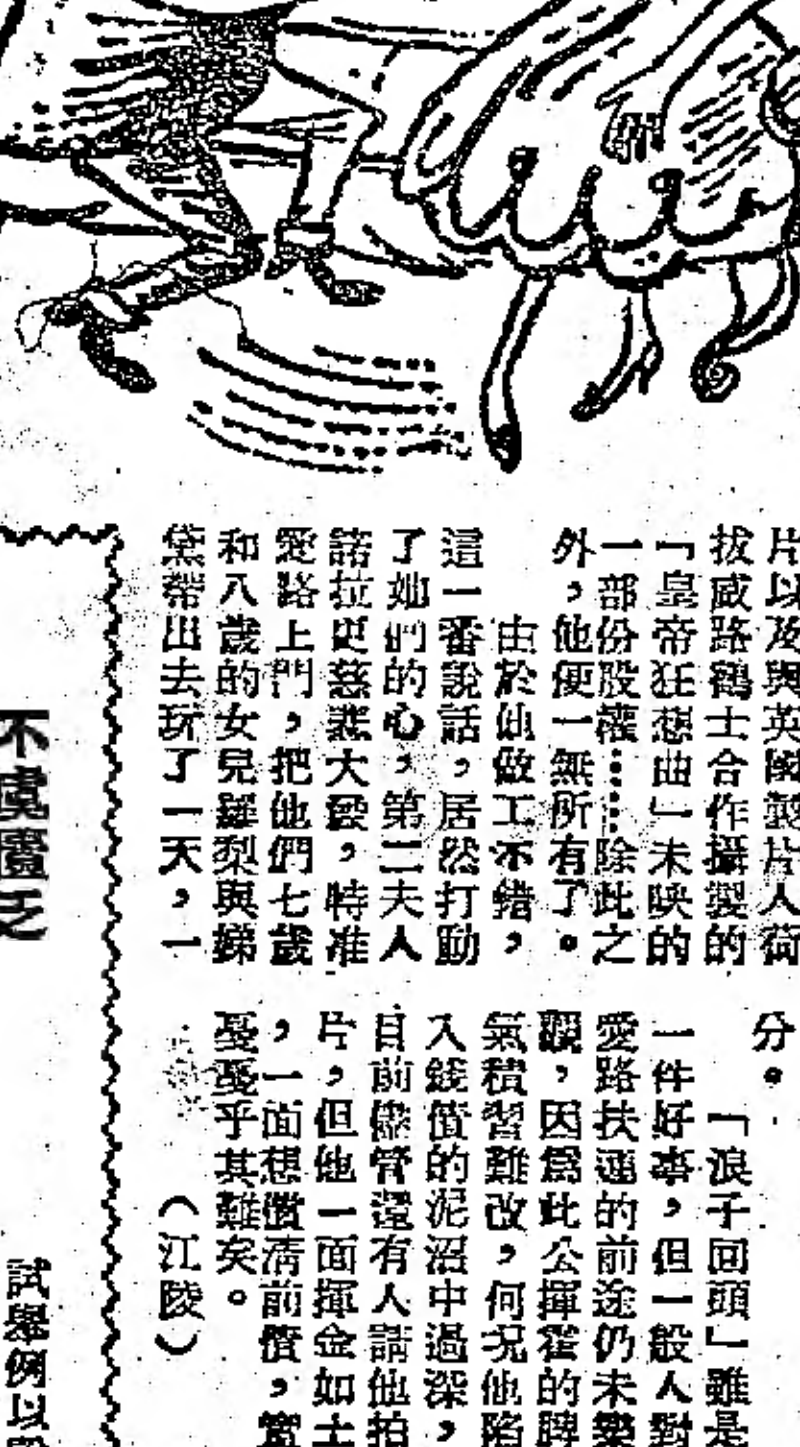 片以及與英國製片人荷
拔威路鶴士合作攝製的
「皇帝狂想曲」未映的
一部份股權……除此之
外，他便一無所有了。
由於他做工不錯，
這一番說話，居然打動
了她們的心，第二夫人
諾拉更慈悲大發，特准
愛路上門，把他們七歲
和八歲的女兒羅梨與娣
黛帶出去玩了一天，一
分。
「浪子回頭」雖是
一件好事，但一般人對
愛路扶連的前途仍未樂
觀，因爲此公揮霍的脾
氣積習難改，何况他陷
入錢債的泥沼中過深，
目前儘管還有人請他拍
片，但他一面揮金如土
，一面想償清前債，實
憂憂乎其難矣。
（江陵）
不虞匱乏
試舉例以